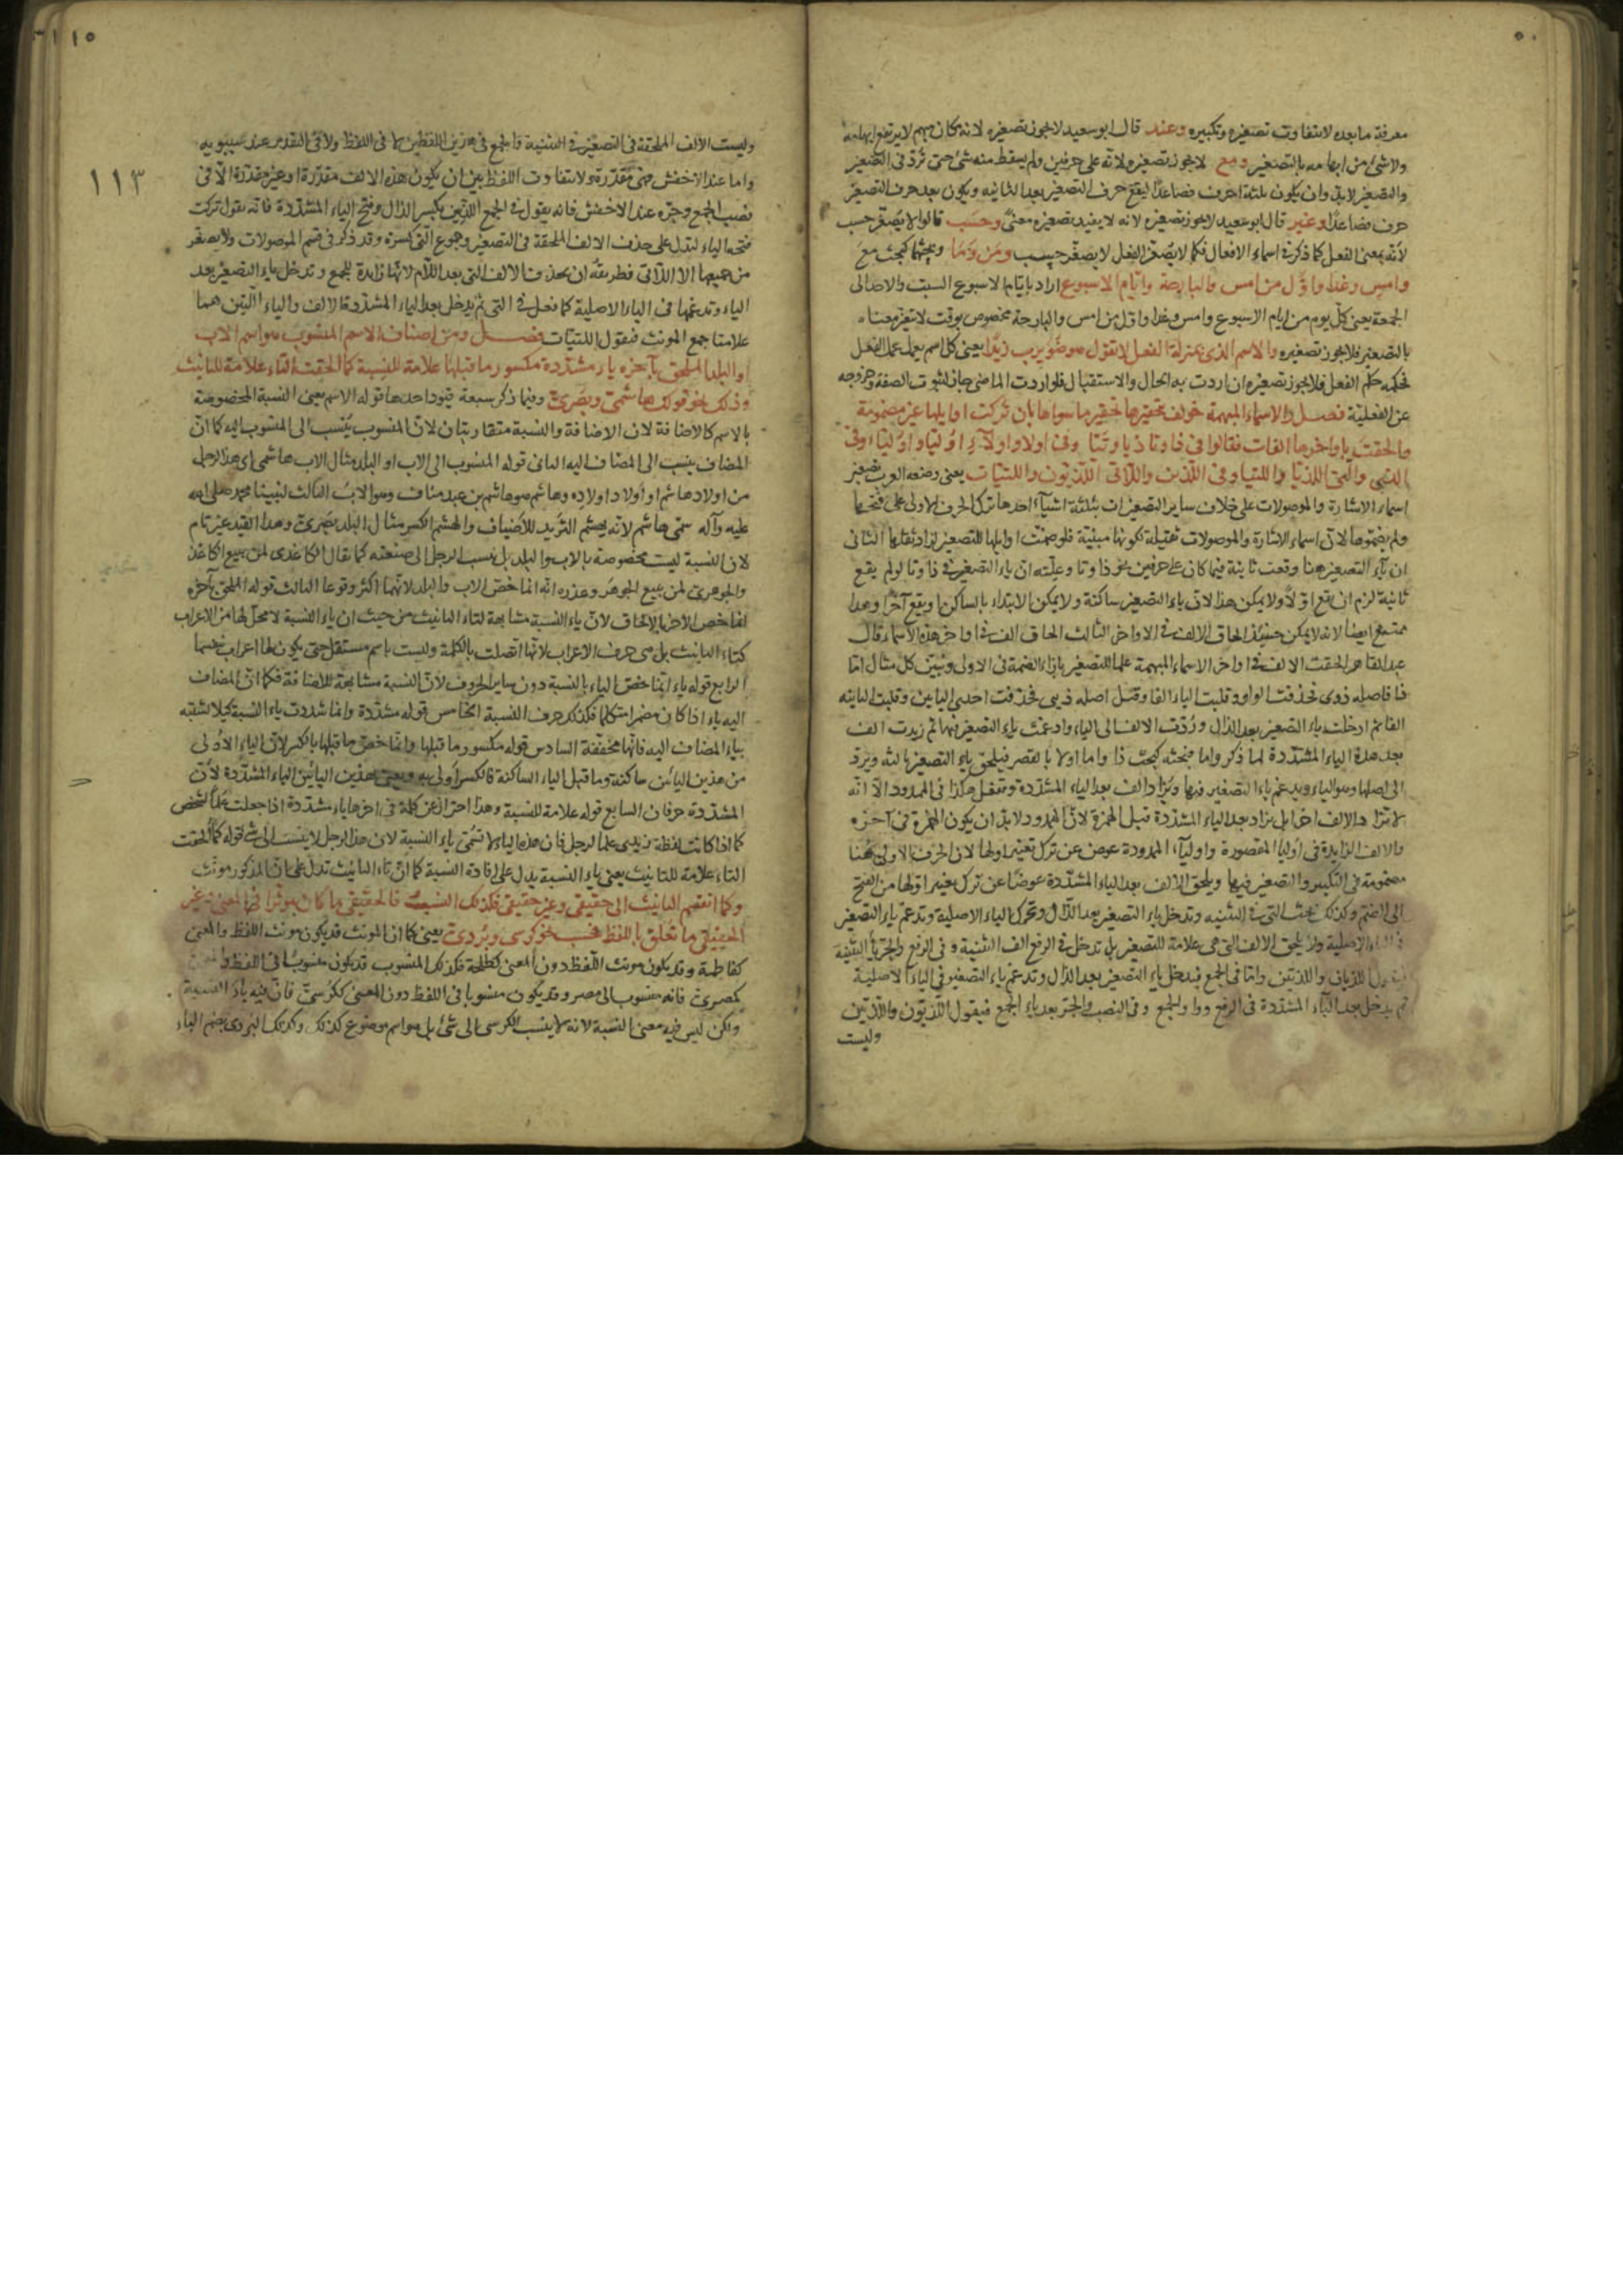 معرفة ما بعده لا يتفاوت تصغيره وتكبيره وعند قال ابو سعيد لا يجوز تصغيره لانه كان مبهم لا يرتفع ابهامه
ولا شئ من ابهامه بالتصغير ومع لا يجوز تصغيره لانه على حرفين ولم يسقط منه شئ حتى تُردّ فى التصغير
والتصغير لا بدّ وان يكون بثلثة احرف فصاعدًا ليقع حرف التصغير بعد الثانية ويكون بعد حرف التصغير
حرف فصاعدًا وغير قال ابو سعيد لا يجوز تصغيره لانه لا يفيد تصغيره معنًى وحسب قالوا لا يصغّر حسب
لانّه بمعنى الفعل كما ذكر فى اسماء الافعال فكما لا يُصغّر الفعل لا يصغّر حسب ومَن وَمَا وبحثهما كبحث مع
وامسِ وغدٍ واوّل من امس والبارحة وايّام الاسبوع اراد بايّام الاسبوع السبت والاحد الى
الجمعة يعنى كلّ يوم من ايام الاسبوع وامس وغدا واول من امس والبارحة مخصوص بوقت لا يتغيّر معناه
بالتصغير فلا يجوز تصغيره والاسم الذى بمنزلة الفعل لا تقول هو ضُوَيرب زيدًا يعنى كل اسم يعمل عمل الفعل
فحكمه حكم الفعل فلا يجوز تصغيره ان اردت به الحال والاستقبال فلو اردت الماضى جاز لثبوت الصفة وخروجه
عن الفعلية فصل والاسماء المبهمة خولف بتحقيرها تحقير ما سواها بان تركت اوايلها غير مضمومة
والحقت باواخرها الفات فقالوا فى ذا وتا ذيا وتيّا وفى اولا واولآءِ اوليّا واوليّاء وفى
الذى والتى اللذيّا واللتيا وفى الّذين واللّاتى اللّذيّون واللتيّات يعنى وضعه العرب تصغير
اسماء الاشارة والموصولات على خلاف ساير التصغيرات بثلثة اشيآء احدها ترك الحرف الاولى على فتحها
ولم يضمّوها لانّ اسماء الاشارة والموصولات ثقيلة لكونها مبنيّة فلو ضمّت اوايلها للتصغير لزاد ثقلها الثانى
ان يآء التصغير هنا وقعت ثانية فيما كان على حرفين نحو ذا وتا وعلّته انّ ياء التصغير فى ذا وتا لو لم يقع
ثانية لزم ان يقع اوّلًا ولا يمكن هذا لانّ ياء التصغير ساكنة ولا يمكن الابتداء بالساكن او يقع آخرًا وهذا
ممتنع ايضا لانه لا يمكن حينئذ الحاق الالف فى الاواخر الثالث الحاق الف فى اواخر هذه الاسماء قال
عبد القاهر الحقت الالف فى اواخر الاسماء المبهمة علما للتصغير بازاء الضمة فى الاولى ونبيّن كل مثال امّا
ذا فاصله ذوى فحذفت الواو وقلبت الياء الفا وقيل اصله ذيى فحذفت احدى اليايين وقلبت الثانية
الفا ثم ادخلت ياء التصغير بعد الذال ورُدّت الالف الى الياء وادغمت ياء التصغير فيها ثم زيدت الف
بعد هذه الياء المشدّدة لما ذكر واما تا فبحثه كبحث ذا واما اولا بالقصر فيلحق ياء التصغير ثالثه ويردّ
الى اصلها وهو الياء ويدغم ياء التصغير فيها ويُزاد الف بعد الياء المشدّدة وتفعل هكذا فى الممدود الّا انّه
لا تزاد الالف اخرا بل يزاد بعد الياء المشدّدة قبل الهمزة لانّ الممدود لا بدّ ان يكون الهمزة فى آخره
والالف الزايدة فى اوليا المقصورة واوليآء الممدودة عوض عن ترك تغيير اولها لان الحرف الاولى ههنا
مضمومة فى التكبير والتصغير فيها ويلحق الالف بعد الياء المشدّدة عوضًا عن ترك تغيير اوّلها من الفتح
الى الضمّ وكذلك بحث التى فى التثنيه وتدخل ياء التصغير بعد الذّال وتحرّك الياء الاصلية وتدغم ياء التصغير
فى الياء الاصلية ولا يلحق الالف التى هى علامة للتصغير بل تدخل فى الرفع الف التثنية وفى الرفع والجرّ ياء التثنية
فيقول اللذيان واللذيّين وامّا فى الجمع فيدخل ياء التصغير بعد الذال وتدغم ياء التصغير فى الياء الاصلية
ثم يدخل بعد الياء المشدّدة فى الرفع واو الجمع وفى النصب والجرّ بعد ياء الجمع فيقول اللّذيّون واللّذيّين
وليست
١١٣
وليست الالف الملحقة فى التصغير فى التثنية والجمع فى هذين اللفظين لا فى اللفظ ولا فى التقدير عند سيبويه
واما عند الاخفش فهى مقدّرة ولا يتفاوت اللفظ بين ان يكون هذه الالف مقدّرة او غير مقدّرة الّا فى
نصب الجمع وجرّه عند الاخفش فانه يقول فى الجمع اللذيّين بكسر الذال وفتح الياء المشدّدة فانّه يقول تركت
فتحه الياء لتدلّ على حذف الالف الملحقة فى التصغير وجموع التى كسرة وقد ذكر فى قسم الموصولات ولا يصغّر
من جميعها الا اللّاتى فطريقه ان يحذف الالف التى بعد اللام لانّها زايدة للجمع وتدخل ياء التصغير بعد
الياء وتدغمها فى الياء الاصلية كما فعل فى التى ثم يدخل بعد الياء المشدّدة الالف والياء الّتين هما
علامتا جمع المونث فيقول اللتيّات فصل ومن اصناف الاسم المنسوب هو اسم الاب
او البلد الملحق بآخره ياء مشدّدة مكسور ما قبلها علامة للنسبة كما الحقت التاء علامة للتانيث
وذلك نحو قولك هاشمىّ وبصرىّ وفيما ذكر سبعة قيود احدها قوله الاسم يعنى النسبة المخصوصة
بالاسم كالاضافة لان الاضافة والنسبة متقاربتان لانّ المنسوب يُنسب الى المنسوب اليه كما انّ
المضاف ينسب الى المضاف اليه الثانى قوله المنسوب الى الاب او البلد مثال الاب هاشمى اى هذا الرجل
من اولاد هاشم او أولاد اولاده وهاشم هو هاشم بن عبد مناف وهو الاب الثالث لنبينا محمد صلى الله
عليه وآله سمّى هاشم لانّه يهشم الثريد للاضياف والهشم الكسر مثال البلد بصرىّ وهذا القيد غير تام
لان النسبة ليست مخصوصة بالاب والبلد بل ينسب الرجل الى صنعته كما يقال الكاغذى لمن يبيع الكاغذ
والجوهرىّ لمن يبيع الجوهر وعذره انّه انما خصّ الاب والبلد لانّهما اكثر وقوعا الثالث قوله الملحق بآخره
انما خصّ الآخر بالالحاق لانّ ياء النسبة مشابهة لتاء التانيث من حيث ان ياء النسبة لا محلّ لها من الاعراب
كتاء التانيث بل هى حرف الاعراب لانّها اتصلت بالكلمة وليست باسم مستقل حتى يكون لها اعراب بنفسها
الرابع قوله ياء انّما خصّ الياء بالنسبة دون ساير الحروف لانّ النسبة مشابهة للاضافة فكما انّ المضاف
اليه ياء اذا كان مضمرا متكلما فكذلك حرف النسبة الخامس قوله مشدّدة وانما شدّدت ياء النسبة كيلا تشتبه
بياء المضاف اليه فانّها مخفّفة السادس قوله مكسور ما قبلها وانما خصّ ما قبلها بالكسر لانّ الياء الاولى
من هذين اليائين ساكنة وما قبل الياء الساكنة فالكسر أولى به ويعنى بهذين اليائين الياء المشدّدة لانّ
المشدّدة حرفان السابع قوله علامة للنسبة وهذا احتراز عن كلمة فى اخرها ياء مشدّدة اذا جعلت علمًا لشخص
كما اذا كانت لفظة علما لرجل فان هذه الياء لا تسمّى ياء النسبة لان هذا الرجل لا ينسب الى شئ قوله كما ألحقت
التاء علامة للتانيث يعنى ياء النسبة يدل على افادة النسبة كما انّ تاء التانيث تدلّ على انّ المذكور مونث
وكما انقسم التانيث الى حقيقى وغير حقيقى فكذلك النسب فالحقيقى ما كان مؤثرا فى المعنى وغير
الحقيقى ما تعلق باللفظ فحسب نحو كرسى وبُردىّ يعنى كما ان المونث قد يكون مونث اللفظ والمعنى
كفاطمة وقد يكون مونث اللفظ دون المعنى كطلحة فكذلك المنسوب قد يكون منسوبا فى اللفظ والمعنى
كمصرىّ فانه منسوب الى مصر وقد يكون منسوبا فى اللفظ دون المعنى ككرسىّ فانّ فيه ياء النسبة
ولكن ليس فيه معنى النسبة لانه لا ينسب الكرسى الى شئ بل هو اسم موضوع كذلك وكذلك البُردى بضم الباء